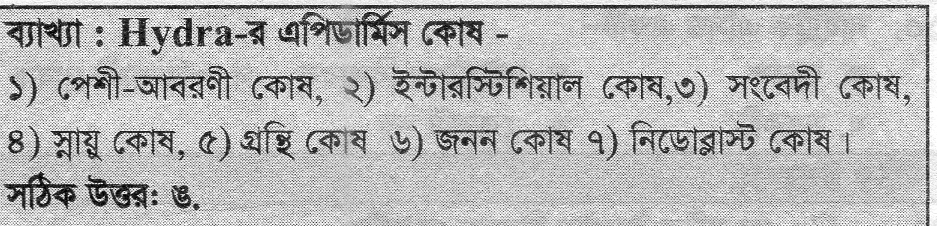 ব্যাখ্যা : Hydra-র এপিডার্মিস কোষ -
১) পেশী-আবরণী কোষ, ২) ইন্টারস্টিশিয়াল কোষ,৩) সংবেদী কোষ,
৪) স্নায়ু কোষ, ৫) গ্রন্থি কোষ ৬) জনন কোষ ৭) নিডোব্লাস্ট কোষ।
সঠিক উত্তর: ঙ.